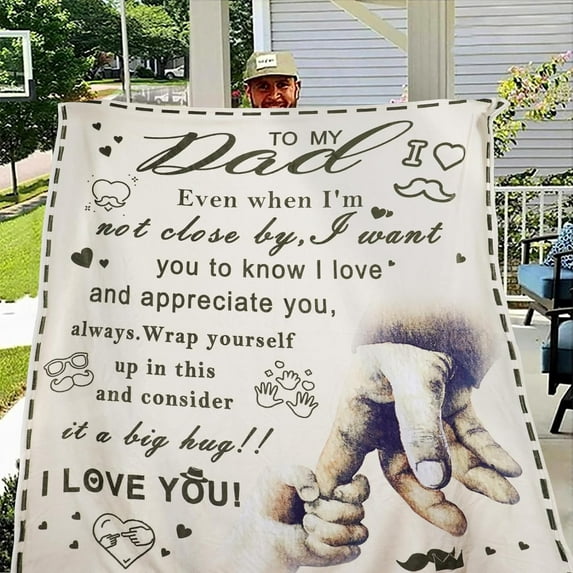 TO MY
Dad
I
Even when I'm
not close by, I want
you to know I love
and appreciate you,
always.Wrap yourself
up in this
and consider
it a big hug!!
I LOVE YOU!